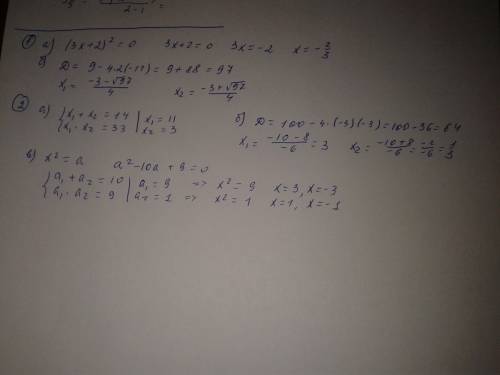 2-1 =
① а) (3x+2)² = 0 3x+2=0 3x=-2 x=-2/3
б) D = 9-4·2(-11) = 9+88 = 97
x₁ = (-3-√97)/4 x₂ = (-3+√97)/4
② а) { x₁+x₂ = 14 | x₁ = 11
{ x₁·x₂ = 33 | x₂ = 3
б) D = 100-4·(-3)(-3)=100-36=64
x₁ = (-10-8)/-6 = 3 x₂ = (-10+8)/-6 = -2/-6 = 1/3
в) x² = a a²-10a+9=0
{ a₁+a₂ = 10 | a₁ = 9 => x² = 9 x=3, x=-3
{ a₁·a₂ = 9 | a₂ = 1 => x² = 1 x=1, x=-1